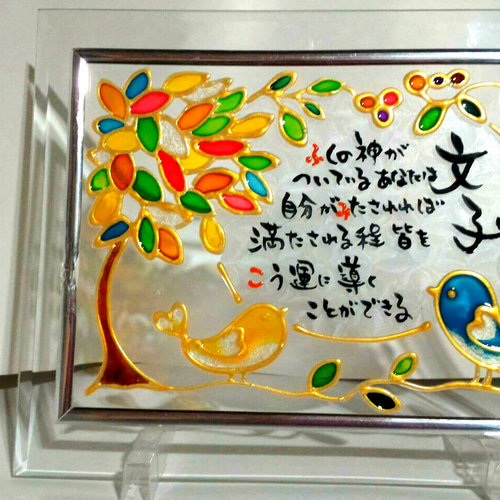 文子
ふくの神が
ついているあなたは
自分がみたされれば
満たされる程 皆を
こう運に導く
ことができる